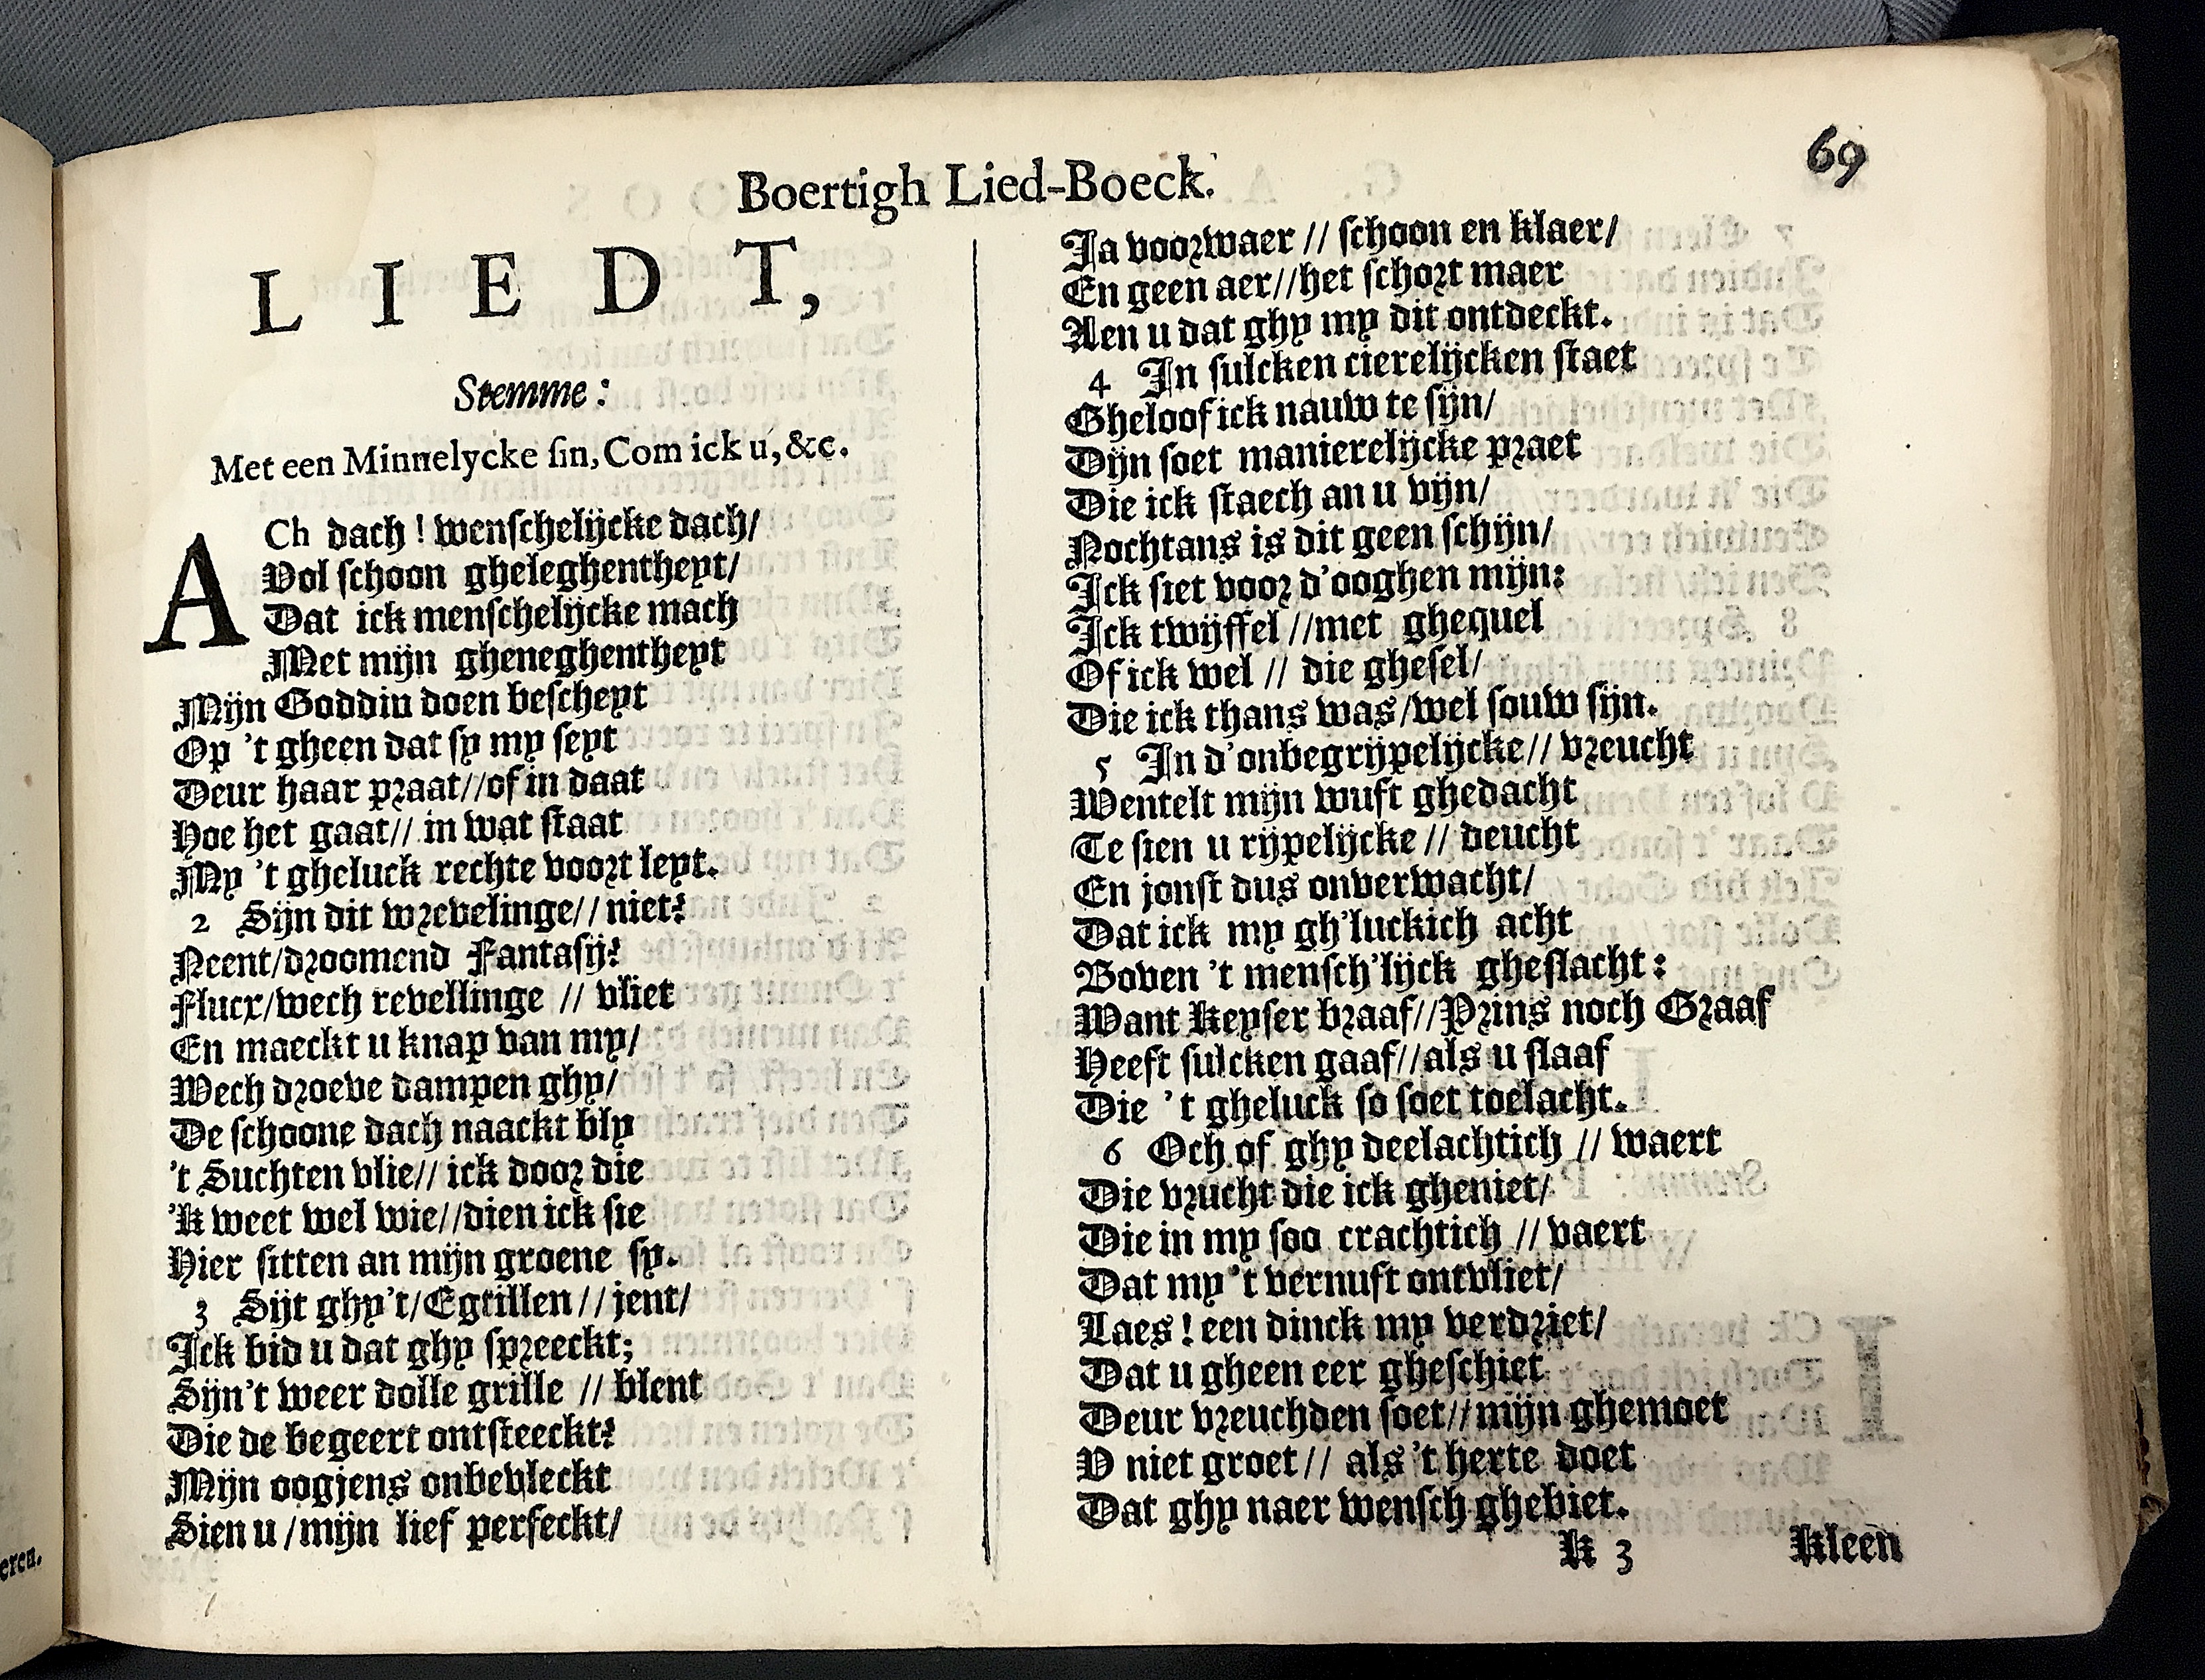 Boertigh Lied-Boeck.
69
LIEDT,
Stemme:
Met een Minnelycke sin, Com ick u, &c.
ACh dach! wenschelijcke dach/
Vol schoon gheleghentheyt/
Dat ick menschelijcke mach
Met mijn gheneghentheyt
Mijn Goddin doen bescheyt
Op 't gheen dat sy my seyt
Deur haar praat//of in daat
Hoe het gaat// in wat staat
My 't gheluck rechte voort leyt.
2 Sijn dit wrevelinge//niet?
Neent/droomend Fantasij?
Flucx/wech revellinge // vliet
En maeckt u knap van my/
Wech droeve dampen ghy/
De schoone dach naackt bly
't Suchten vlie// ick door die
'K weet wel wie//dien ick sie
Hier sitten an mijn groene sy.
3 Sijt ghy't/Egtillen//jent/
Ick bid u dat ghy spreeckt;
Sijn't weer dolle grille // blent
Die de begeert ontsteeckt?
Mijn oogjens onbevleckt
Sien u/mijn lief perfeckt/
Ja voorwaer // schoon en klaer/
En geen aer//het schort maer
Aen u dat ghy my dit ontdeckt.
4 In sulcken cierelijcken staet
Gheloof ick nauw te sijn/
Dijn soet manierelijcke praet
Die ick staech an u vijn/
Nochtans is dit geen schijn/
Ick siet voor d'ooghen mijn:
Ick twijffel //met ghequel
Of ick wel // die ghesel/
Die ick thans was/wel souw sijn.
5 In d'onbegrijpelijcke// vreucht
Wentelt mijn wuft ghedacht
Te sien u rijpelijcke // deucht
En jonst dus onverwacht/
Dat ick my gh'luckich acht
Boven 't mensch'lijck gheslacht:
Want Keyser braaf//Prins noch Graaf
Heeft sulcken gaaf//als u slaaf
Die 't gheluck so soet toelacht.
6 Och of ghy deelachtich // waert
Die vrucht die ick gheniet/
Die in my soo crachtich // vaert
Dat my 't vernuft ontvliet/
Laes! een dinck my verdriet/
Dat u gheen eer gheschiet
Deur vreuchden soet//mijn ghemoet
V niet groet// als 't herte doet
Dat ghy naer wensch ghebiet.
K 3
Kleen
eren.